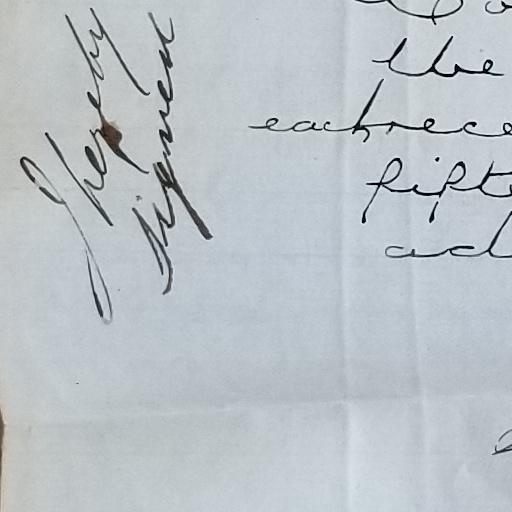 I hereby
signed
the
each rece
fifte
ad